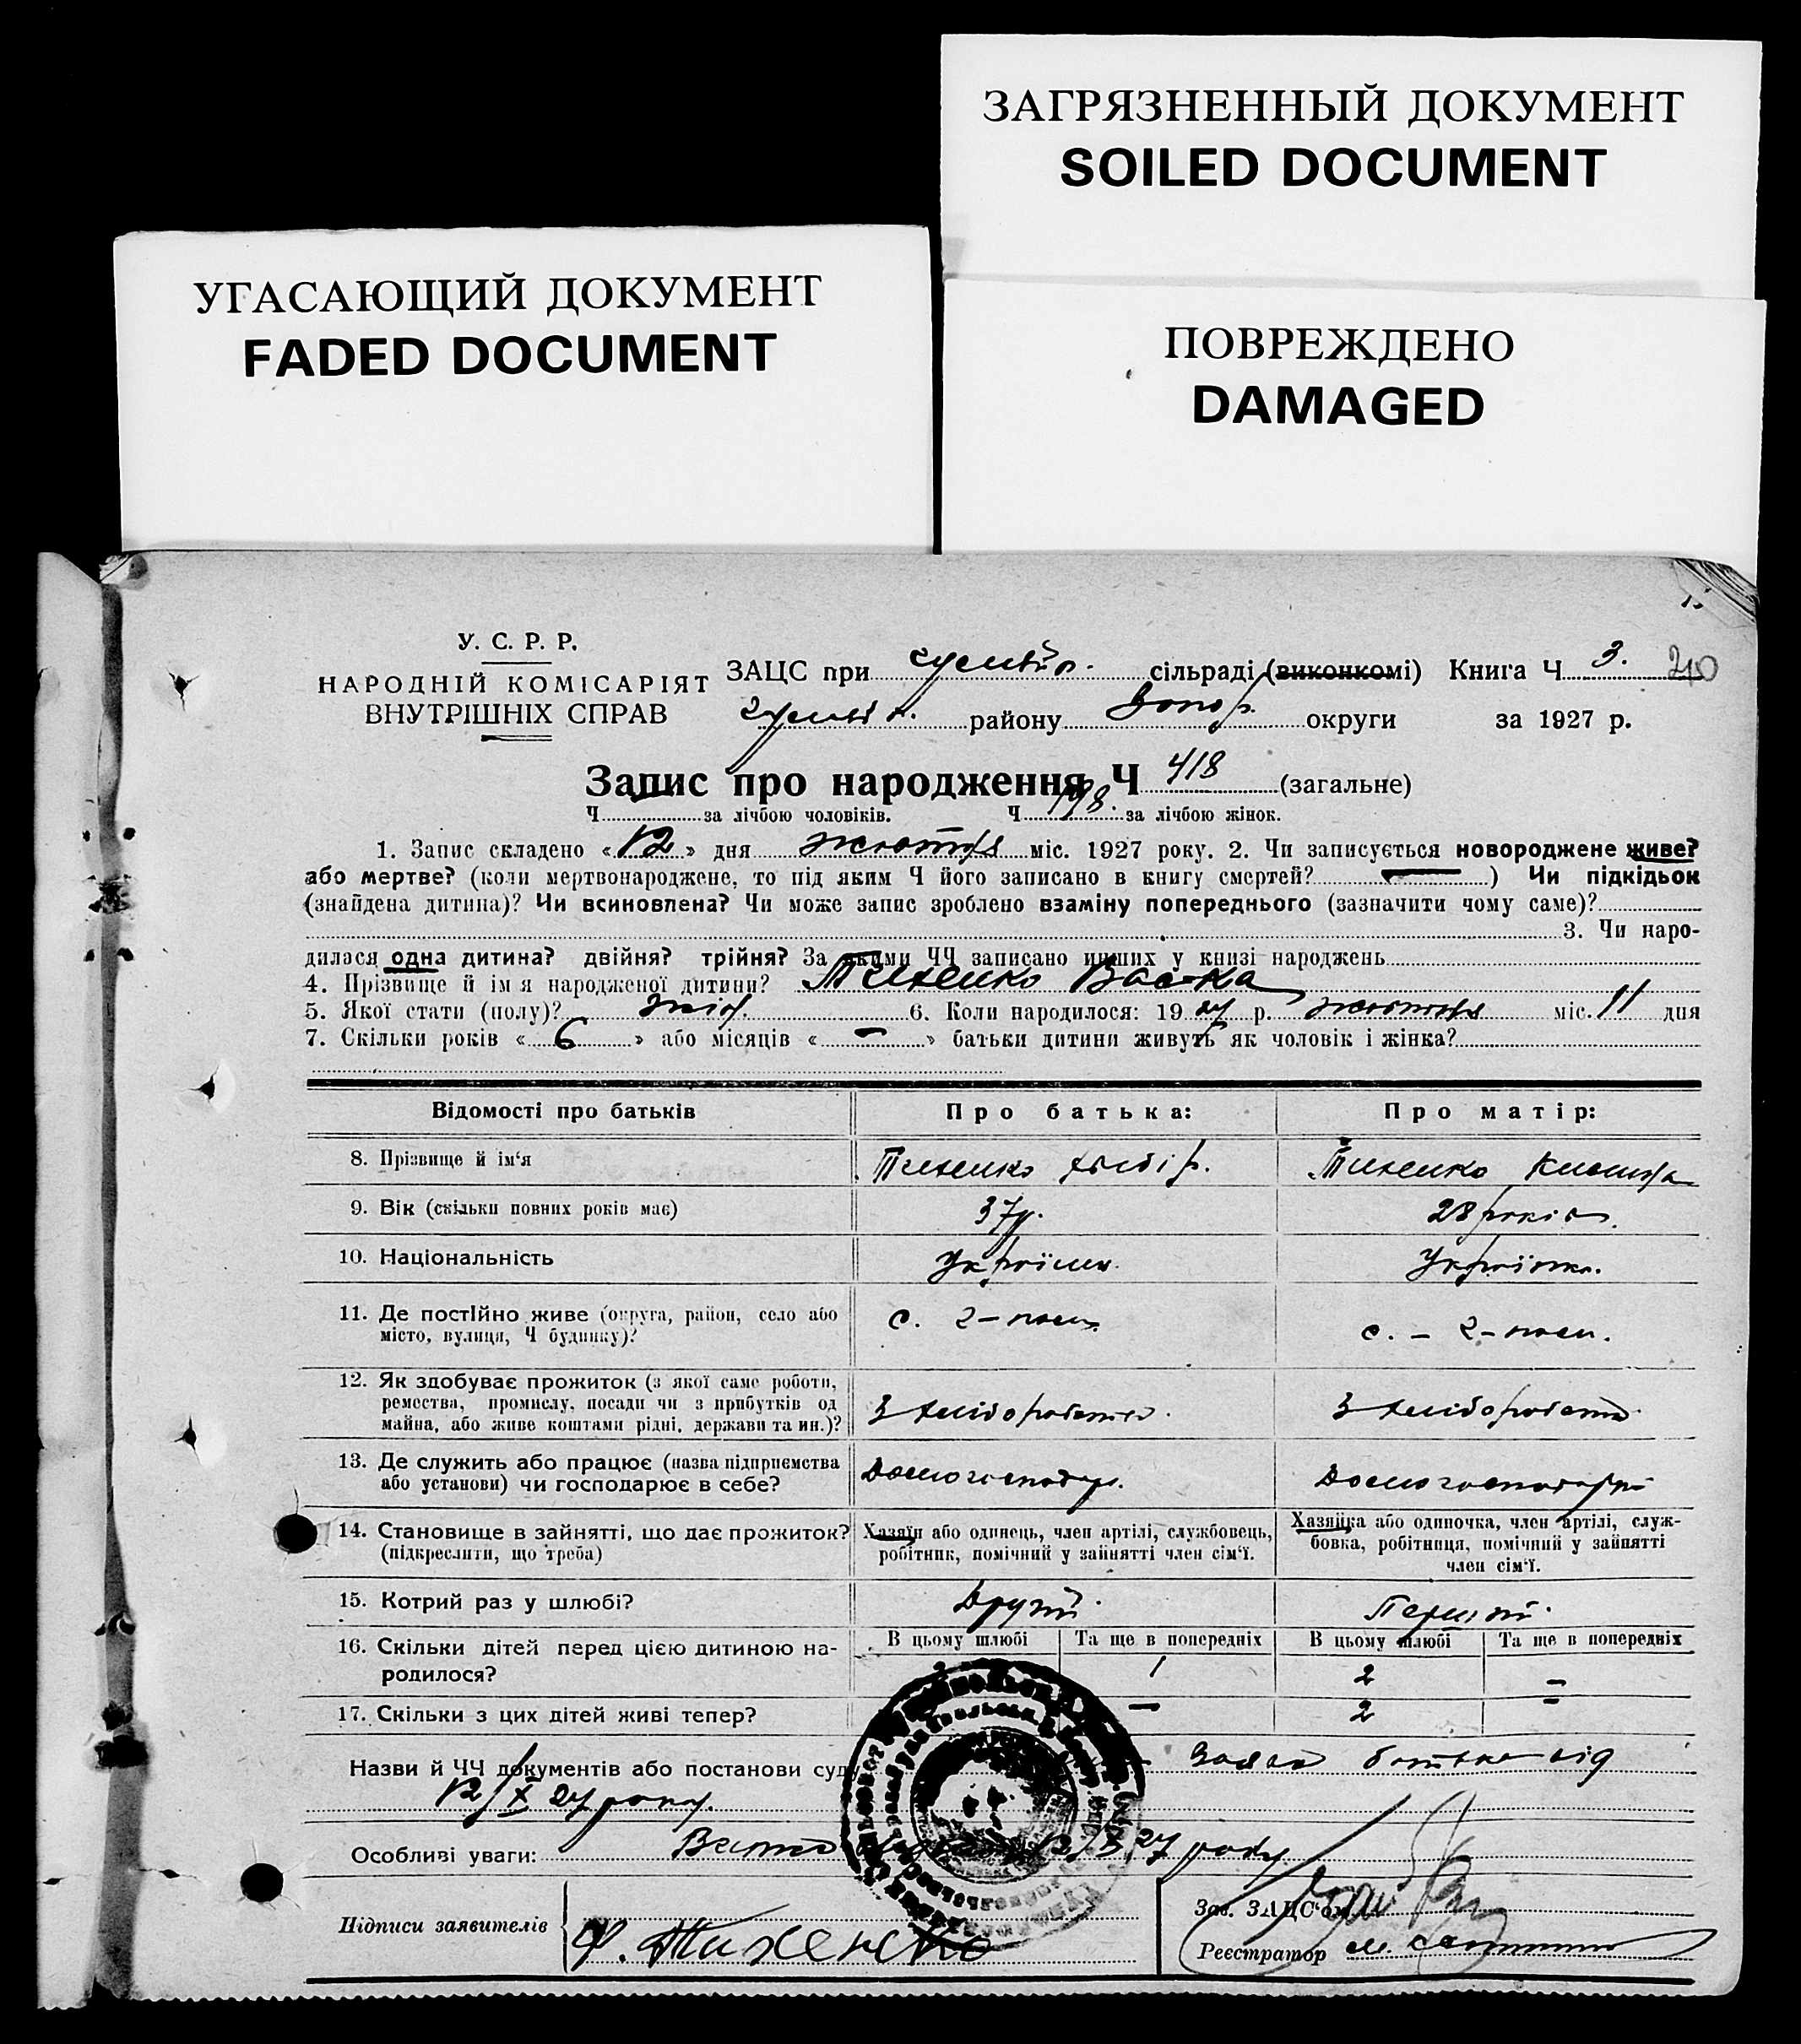 ЗАГРЯЗНЕННЫЙ ДОКУМЕНТ
SOILED DOCUMENT
УГАСАЮЩИЙ ДОКУМЕНТ
FADED DOCUMENT
ПОВРЕЖДЕНО
DAMAGED
У. С. Р. Р.
НАРОДНІЙ КОМІСАРІЯТ
ВНУТРІШНІХ СПРАВ
ЗАЦС при сільраді (виконкомі) Книга Ч 3. 210
району Запор. округи за 1927 р.
Запис про народження Ч 418 (загальне)
Ч — за лічбою чоловіків. Ч 198. за лічбою жінок.
1. Запис складено «12» дня жовтня міс. 1927 року. 2. Чи записується новороджене живе?
або мертве? (коли мертвонароджене, то під яким Ч його записано в книгу смертей? — ) Чи підкідьок
(знайдена дитина)? Чи всиновлена? Чи може запис зроблено взаміну попереднього (зазначити чому саме)?
3. Чи наро-
дилася одна дитина? двійня? трійня? За якими ЧЧ записано инших у книзі народжень
4. Прізвище й ім'я народженої дитини? Тихенко
5. Якої стати (полу)? жін. 6. Коли народилося: 1927 р. жовтня міс. 11 дня
7. Скільки років «6» або місяців « – » батьки дитини живуть як чоловік і жінка?
Відомості про батьків Про батька: Про матір:
8. Прізвище й ім'я Тихенко Тихенко
9. Вік (скільки повних років має) 37р. 28 років.
10. Національність Україн. Українка.
11. Де постійно живе (округа, район, село або
місто, вулиця, Ч будинку)?
с. с. –
12. Як здобуває прожиток (з якої саме роботи,
ремества, промислу, посади чи з прибутків од
майна, або живе коштами рідні, держави та ин.)?
З хліборобства. З хліборобства
13. Де служить або працює (назва підприємства
або установи) чи господарює в себе?
Домогосподар. Домогосподарка
14. Становище в зайнятті, що дає прожиток?
(підкреслити, що треба)
Хазяїн або одинець, член артілі, службовець,
робітник, помічний у зайнятті член сім'ї.
Хазяйка або одиночка, член артілі, служ-
бовка, робітниця, помічний у зайнятті
член сім'ї.
15. Котрий раз у шлюбі? Другий. Перший.
16. Скільки дітей перед цією дитиною на-
родилося?
В цьому шлюбі Та ще в попередніх В цьому шлюбі Та ще в попередніх
1 2 –
17. Скільки з цих дітей живі тепер? – 2 –
Назви й ЧЧ документів або постанови суду Заява батька від
12/X 27 року.
Особливі уваги: 12/X 27 року.
Підписи заявителів
Ф. Тихенко
Зав. ЗАЦС'ом
Реєстратор